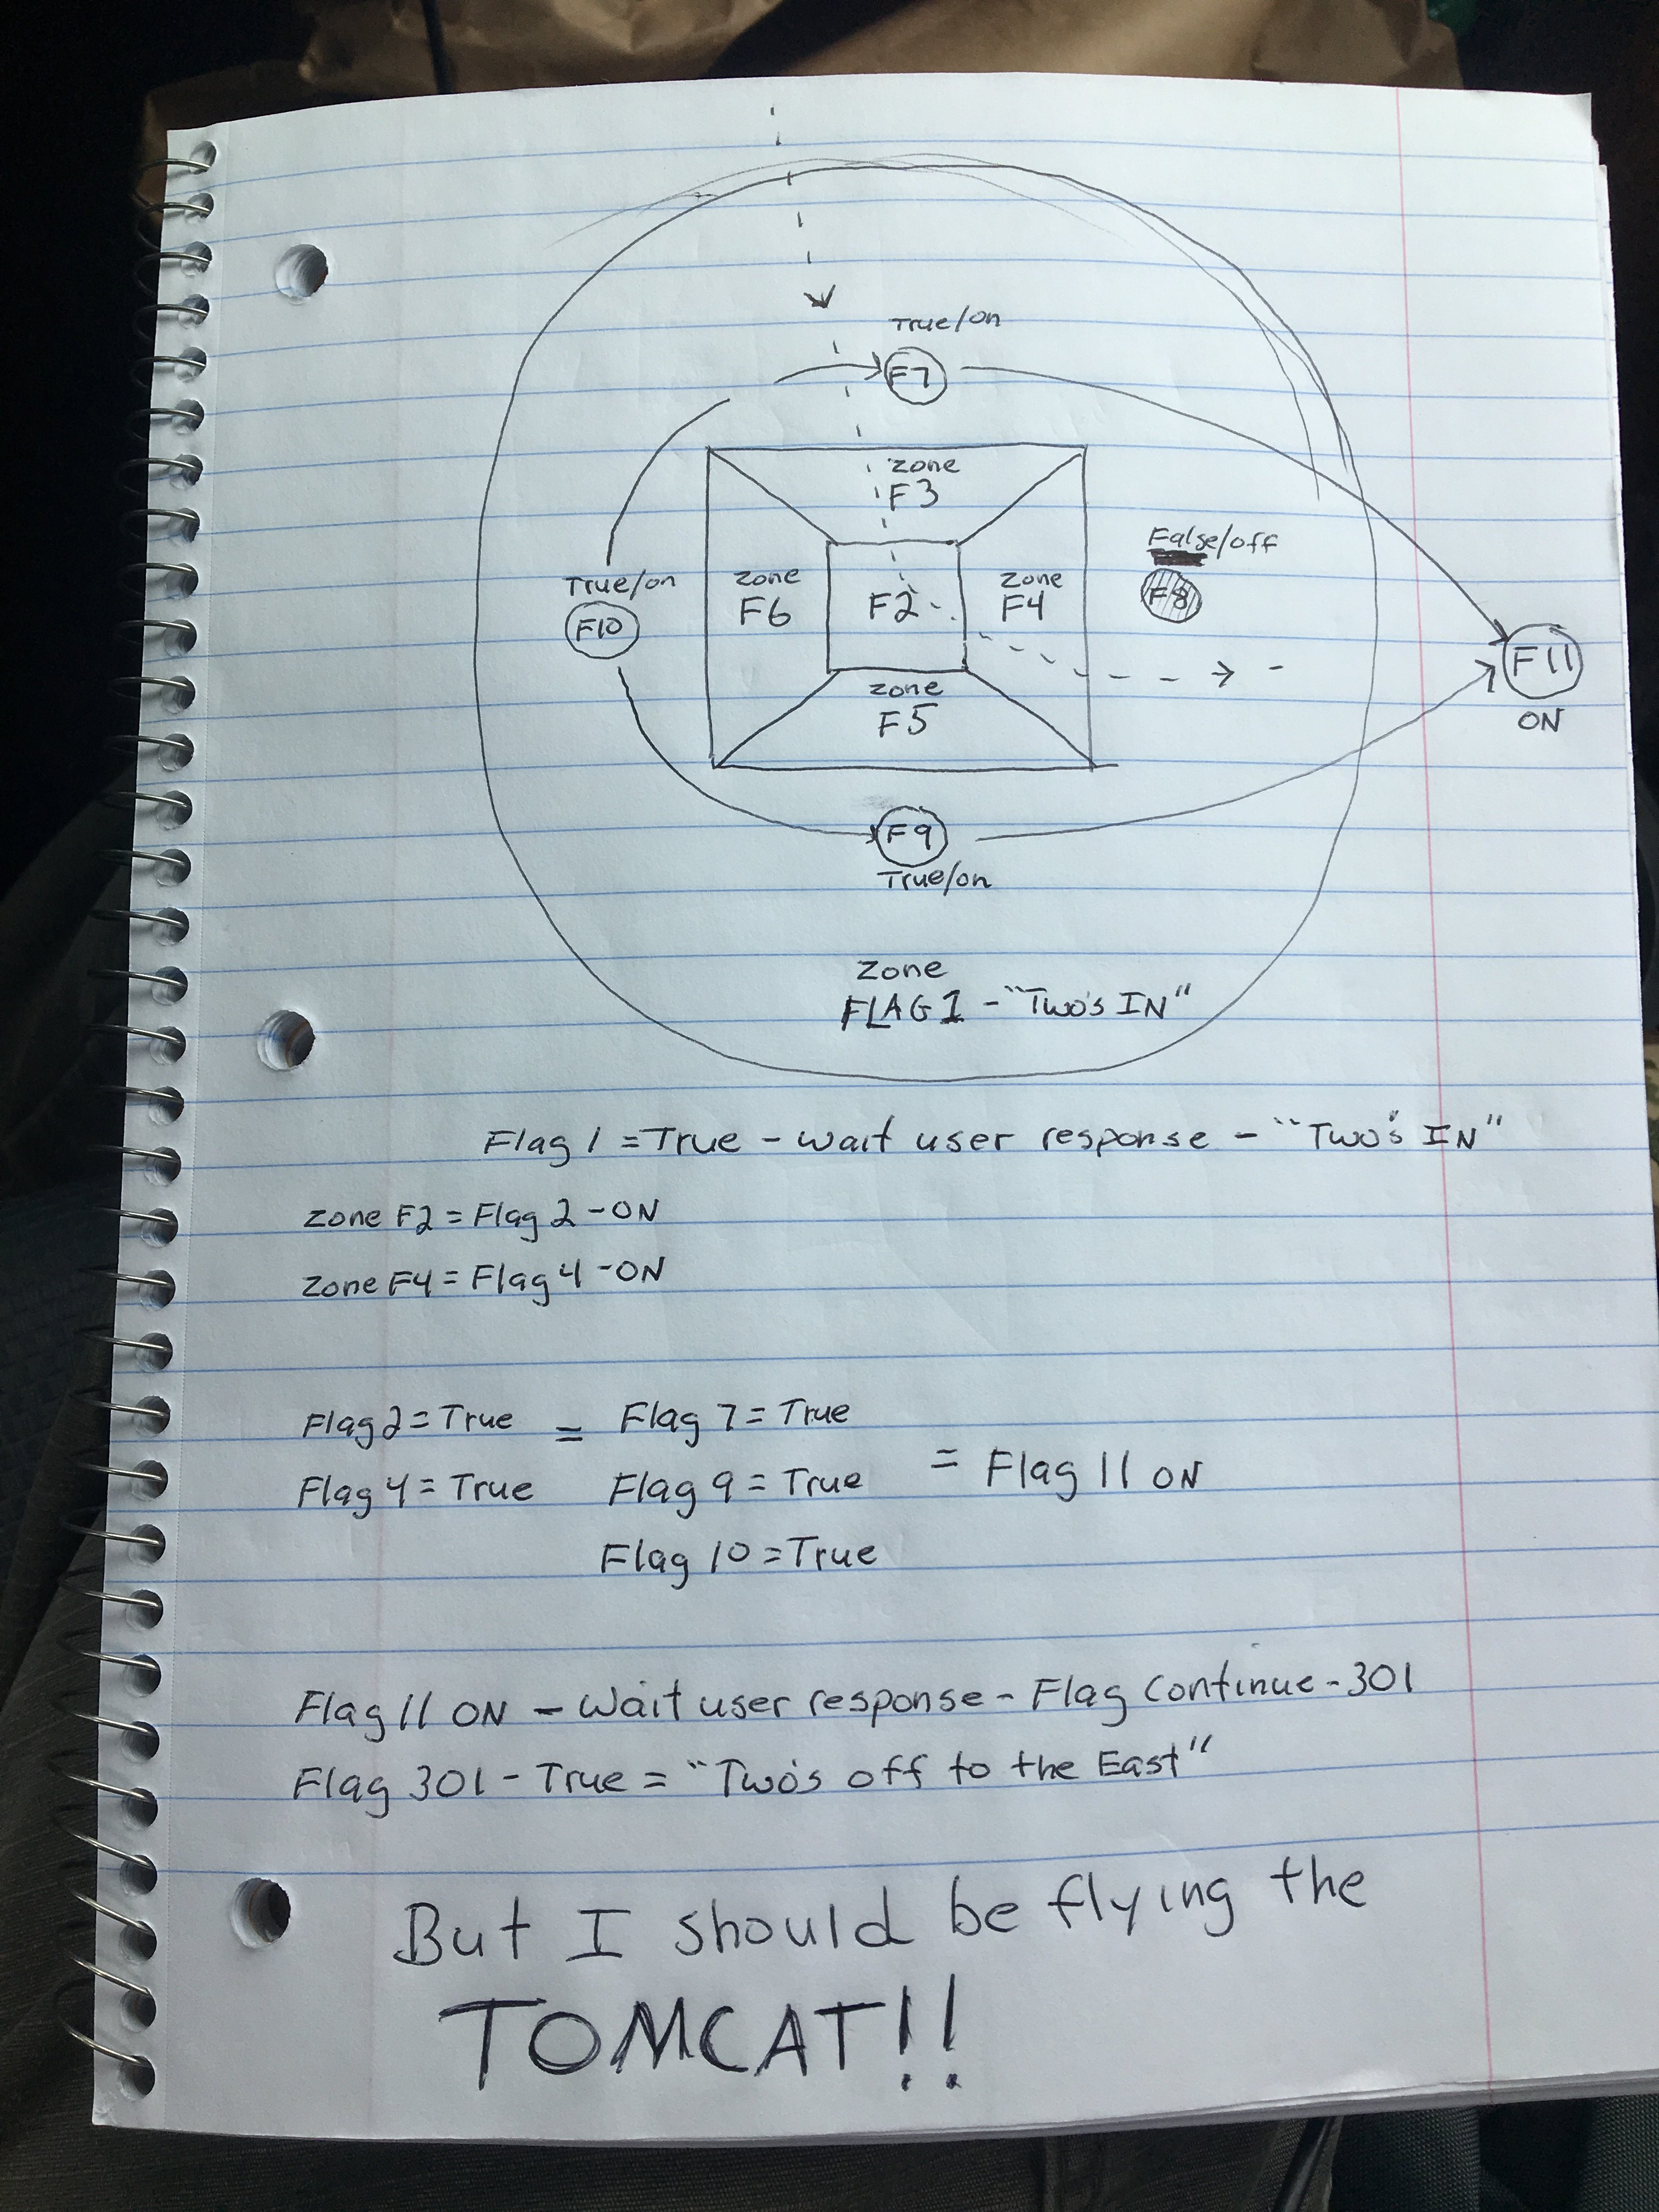 True/on
F7
zone
F3
False/off
F8
True/on
F10
zone
F6
F2
zone
F4
F11
ON
zone
F5
F9
True/on
zone
FLAG 1 - "Two's IN"
Flag 1 = True - wait user response - "Two's IN"
zone F2 = Flag 2 - ON
zone F4 = Flag 4 - ON
Flag 2 = True = Flag 7 = True
Flag 4 = True Flag 9 = True = Flag 11 ON
Flag 10 = True
Flag 11 ON - Wait user response - Flag Continue - 301
Flag 301 - True = "Two's off to the East"
But I should be flying the
TOMCAT!!